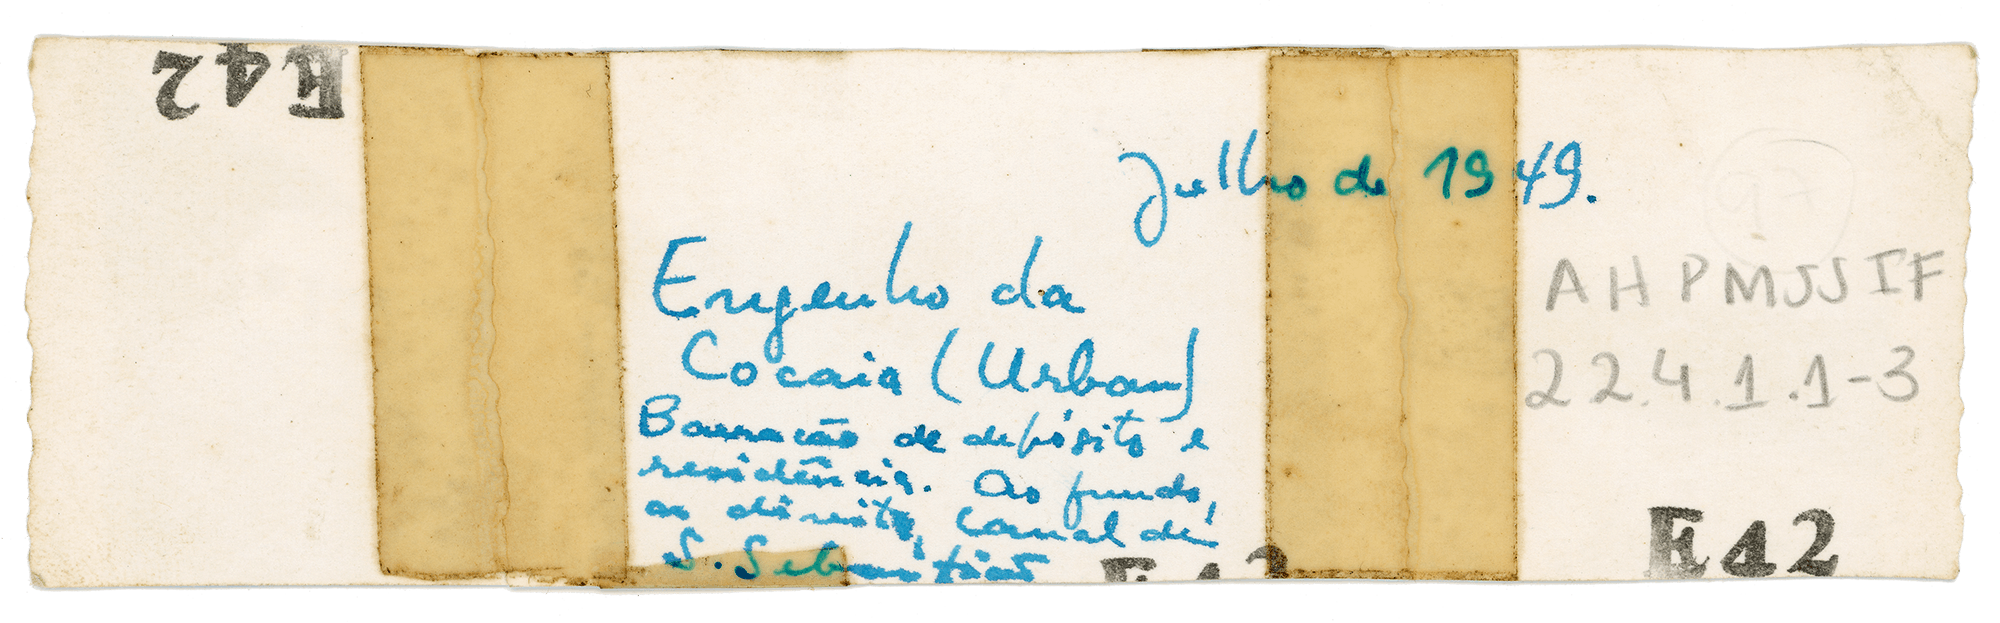 E42
Julho de 1949.
Engenho da
Cocaia (Urbam)
Barracão de depósito e
residência. Ao fundo,
a direita, Canal de
S. Sebastião
AHPMJSJIF
22.4.1.1-3
E42
E42